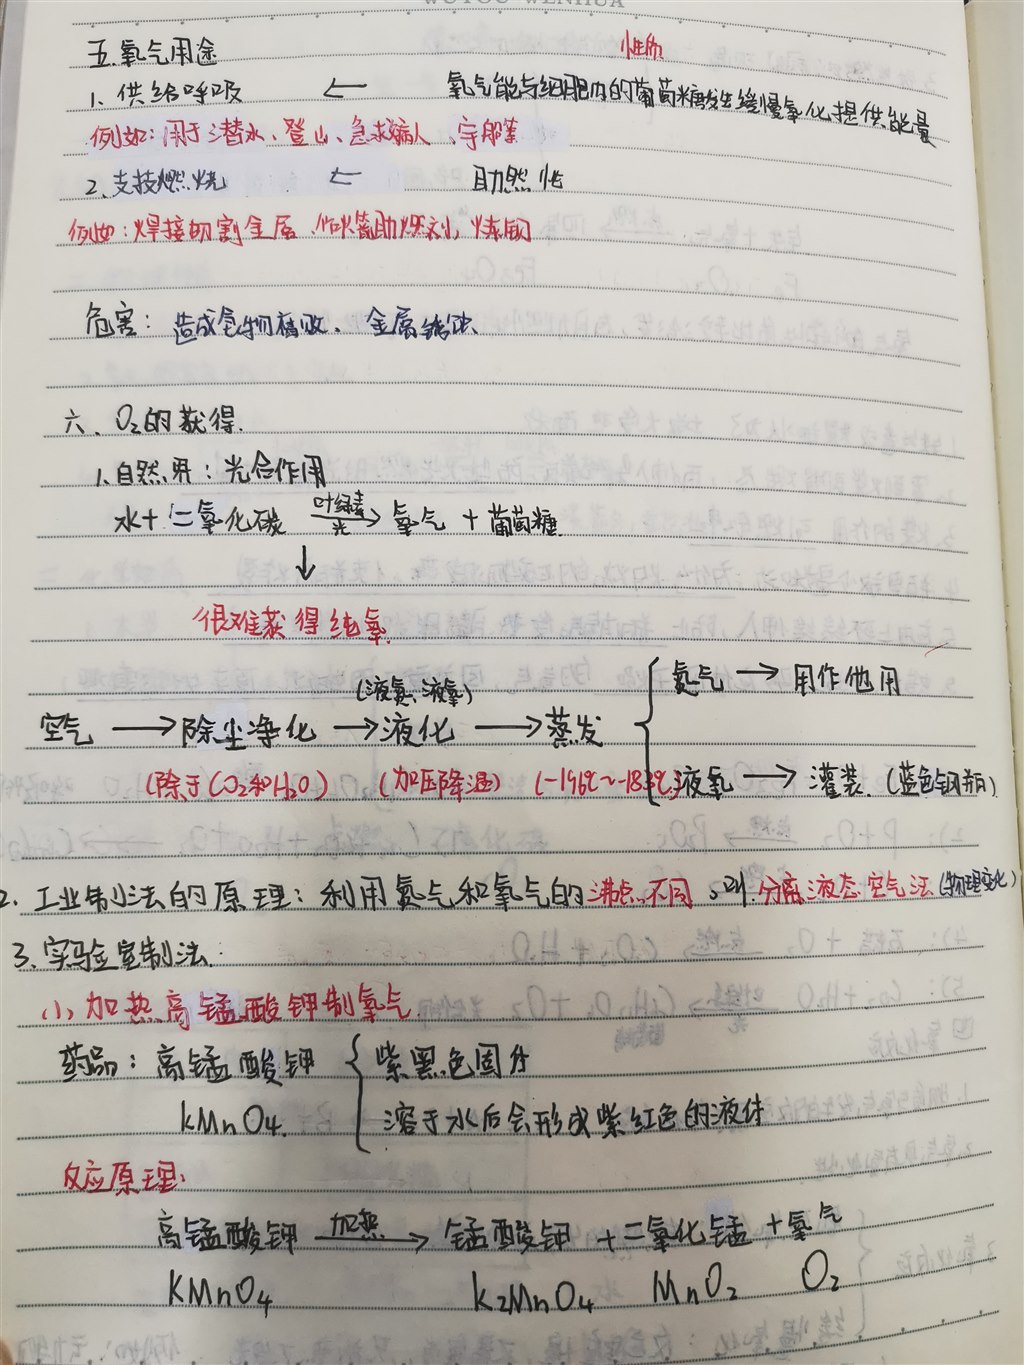 WUYOU WENHUA
五.氧气用途 性质
1、供给呼吸 ← 氧气能与细胞内的葡萄糖发生缓慢氧化提供能量
例如:用于潜水、登山、急求病人、宇船等
2.支技燃烧 ← 助然性
例如:焊接切割金属、作火箭助燃剂,炼钢
危害:造成食物腐败、金属锈蚀
六、O₂的获得.
1.自然界:光合作用
水+二氧化碳 叶绿素/光→ 氧气 + 葡萄糖
↓
很难获得纯氧
(液氮、液氧) { 氮气 → 用作他用
空气 → 除尘净化 → 液化 → 蒸发
(除于CO₂和H₂O) (加压降温) (-196℃~-183℃) 液氧 → 灌装.(蓝色钢瓶)
2.工业制法的原理:利用氮气和氧气的沸点不同。叫.分离液态空气法(物理变化)
3.实验室制法.
(1)、加热高锰酸钾制氧气
药品:高锰酸钾 { 紫黑色固体
KMnO₄. 溶于水后会形成紫红色的液体
反应原理:
高锰酸钾 加热→ 锰酸钾 + 二氧化锰 + 氧气
KMnO₄ K₂MnO₄ MnO₂ O₂